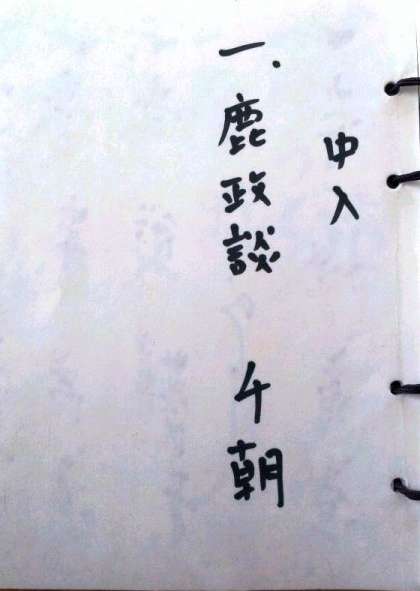 中入
一、鹿政談 千朝